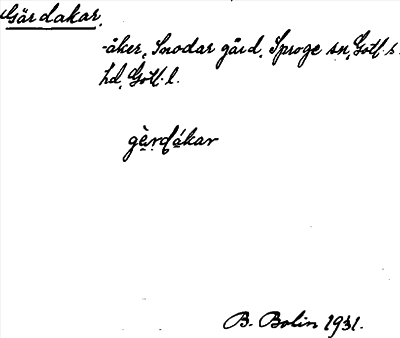 Gärdakar.
-åker, Snodar gård, Sproge sn, Gotl. s.
hd, Gotl. l.
gèrdákar
B. Bolin 1931.